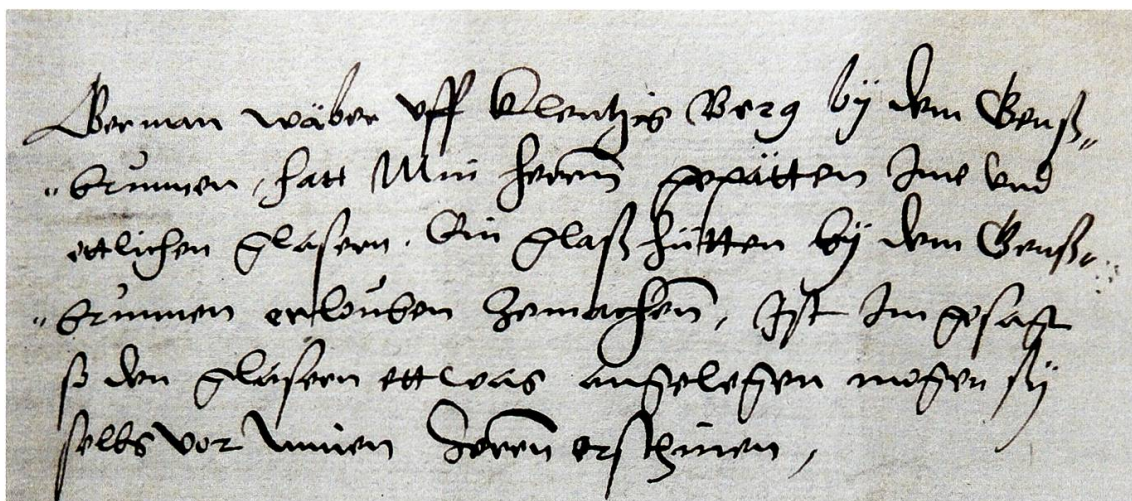 German wäber uff Klentzis Berg bÿ dem Genß„
„brunnen, hatt Min herrn gepätten Ime und
ettlichen glasern. Ein glaß hütten bÿ dem Genß„
„brunnen erlouben zemachen, Ist Im gesagt
so den glasern ettwas angelegen mogen sÿ
selbs vor minen herrn erschinen,